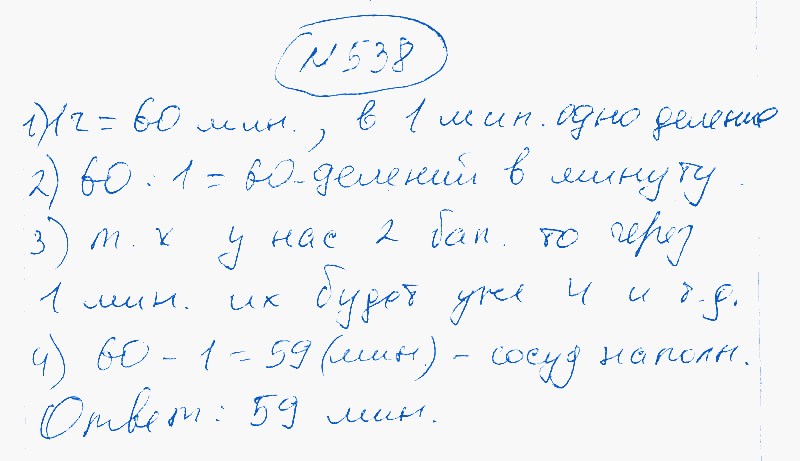 N538
1) 1ч = 60 мин., в 1 мин. одно деление
2) 60 : 1 = 60 - делений в минуту.
3) т. к у нас 2 бак. то через
1 мин. их будет уже 4 и т.д.
4) 60 - 1 = 59 (мин.) - сосуд наполн.
Ответ: 59 мин.